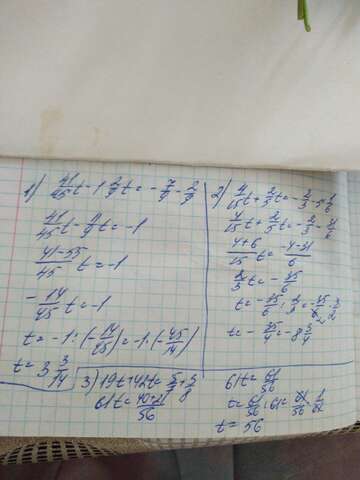 1) 41/45 t - 1 2/9 t = - 7/9 - 2/9
41/45 t - 11/9 t = -1
(41-55)/45 t = -1
- 14/45 t = -1
t = -1 : (- 14/45) = -1 · (- 45/14)
t = 3 3/14
2) 4/15 t + 2/5 t = - 2/3 - 3 1/6
4/15 t + 2/5 t = - 2/3 -
(4+6)/15 t = (-4-21)/6
2/3 t = - 25/6
t = - 25/6 : 2/3 = - 25/6 · 3/2
t = - 25/4 =
3) 19t + 42t = 5/7 + 3/8
61t = (40+21)/56
61t = 61/56
t = 61/56 : 61 = 61/56 ·
t = 56